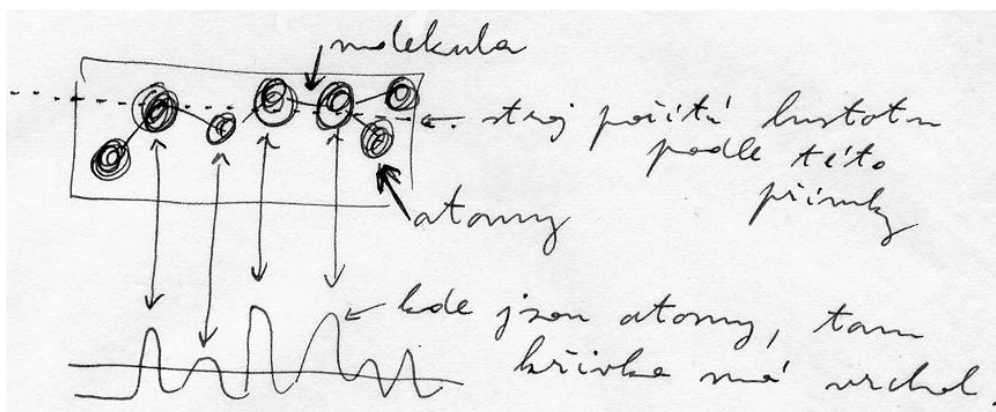 molekula
stroj počítá hustotu
podle této
přímky
atomy
kde jsou atomy, tam
křivka má vrchol.